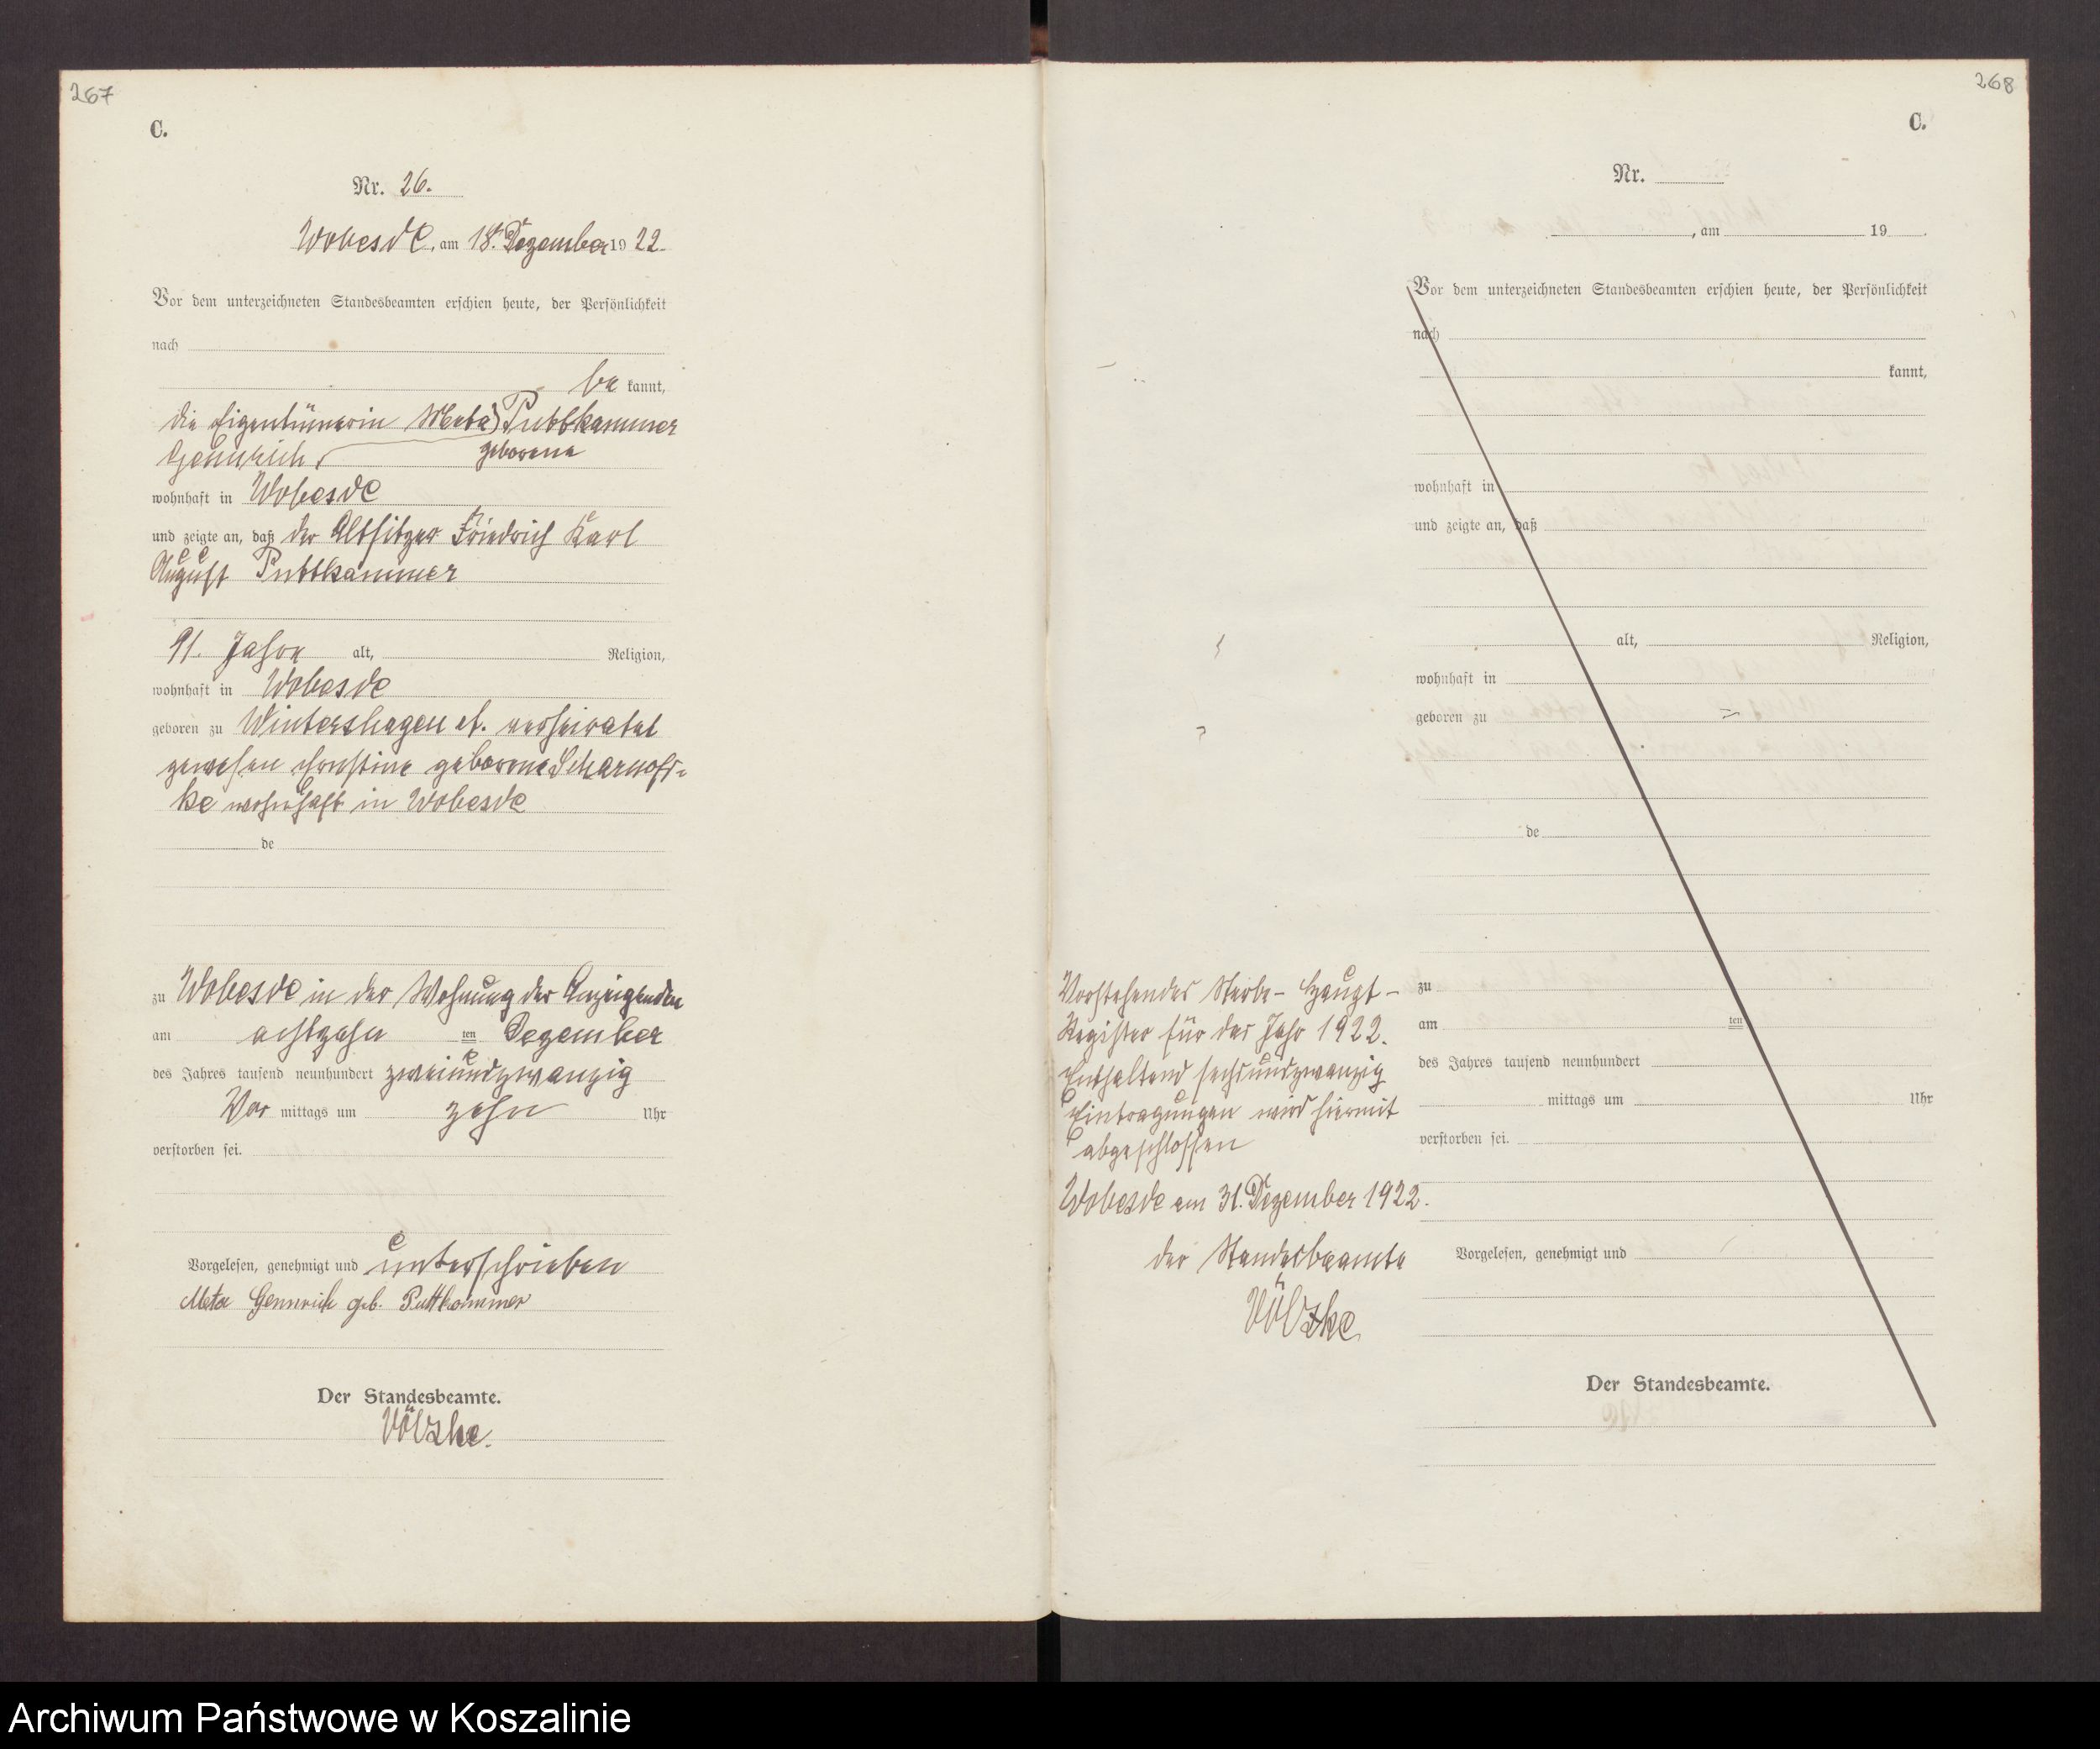 267
C.
Nr. 26.
Wobesde, am 18. Dezember 1922.
Vor dem unterzeichneten Standesbeamten erschien heute, der Persönlichkeit
nach
be kannt,
die Eigentümerin Meta Puttkammer
Gennrich, geborene
wohnhaft in Wobesde
und zeigte an, daß der Altsitzer Friedrich Karl
August Puttkammer
91 Jahre alt, Religion,
wohnhaft in Wobesde
geboren zu Wintershagen verheiratet
gewesen Ernstine geborene
ke wohnhaft in Wobesde
de
zu Wobesde in der Wohnung der Anzeigenden
am achtzehn ten Dezember
des Jahres tausend neunhundert zweiundzwanzig
Vor mittags um zehn Uhr
verstorben sei.
Vorgelesen, genehmigt und unterschrieben
Meta Gennrich geb. Puttkammer
Der Standesbeamte.
Völzke.
268
C.
Nr.
, am 19 .
Vor dem unterzeichneten Standesbeamten erschien heute, der Persönlichkeit
nach
kannt,
wohnhaft in
und zeigte an, daß
alt, Religion,
wohnhaft in
geboren zu
de
zu
am ten
des Jahres tausend neunhundert
mittags um Uhr
verstorben sei.
Vorgelesen, genehmigt und
Der Standesbeamte.
Vorstehendes Sterbe-Haupt-
Register für das Jahr 1922.
Enthaltend sechsundzwanzig
Eintragungen wird hiermit
abgeschlossen
Wobesde am 31. Dezember 1922.
der Standesbeamte
Völzke
Archiwum Państwowe w Koszalinie